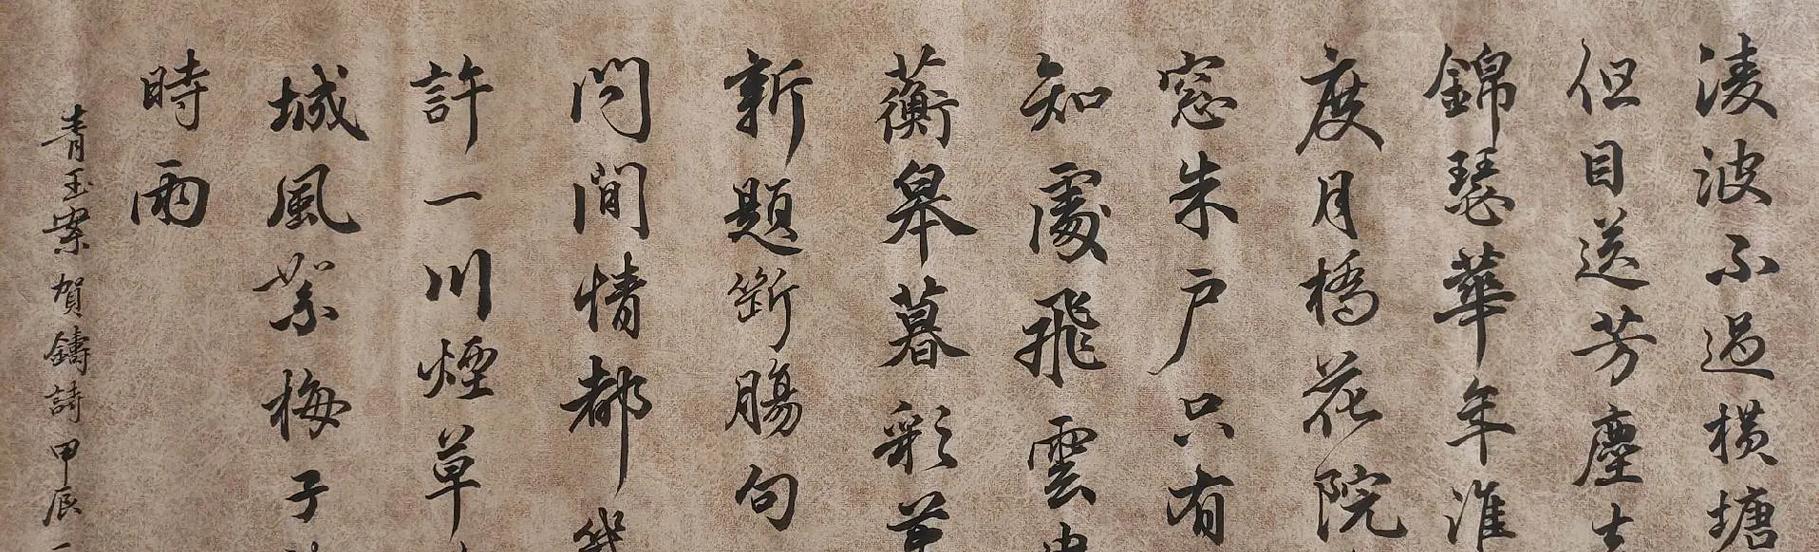 淩波不過橫塘
但目送芳塵去
錦瑟華年誰
度月橋花院
窓朱戶只有
知處飛雲冉
蘅皋暮彩筆
新題斷腸句
問閒情都幾
許一川煙草
城風絮梅子
時雨
青玉案賀鑄詩甲辰